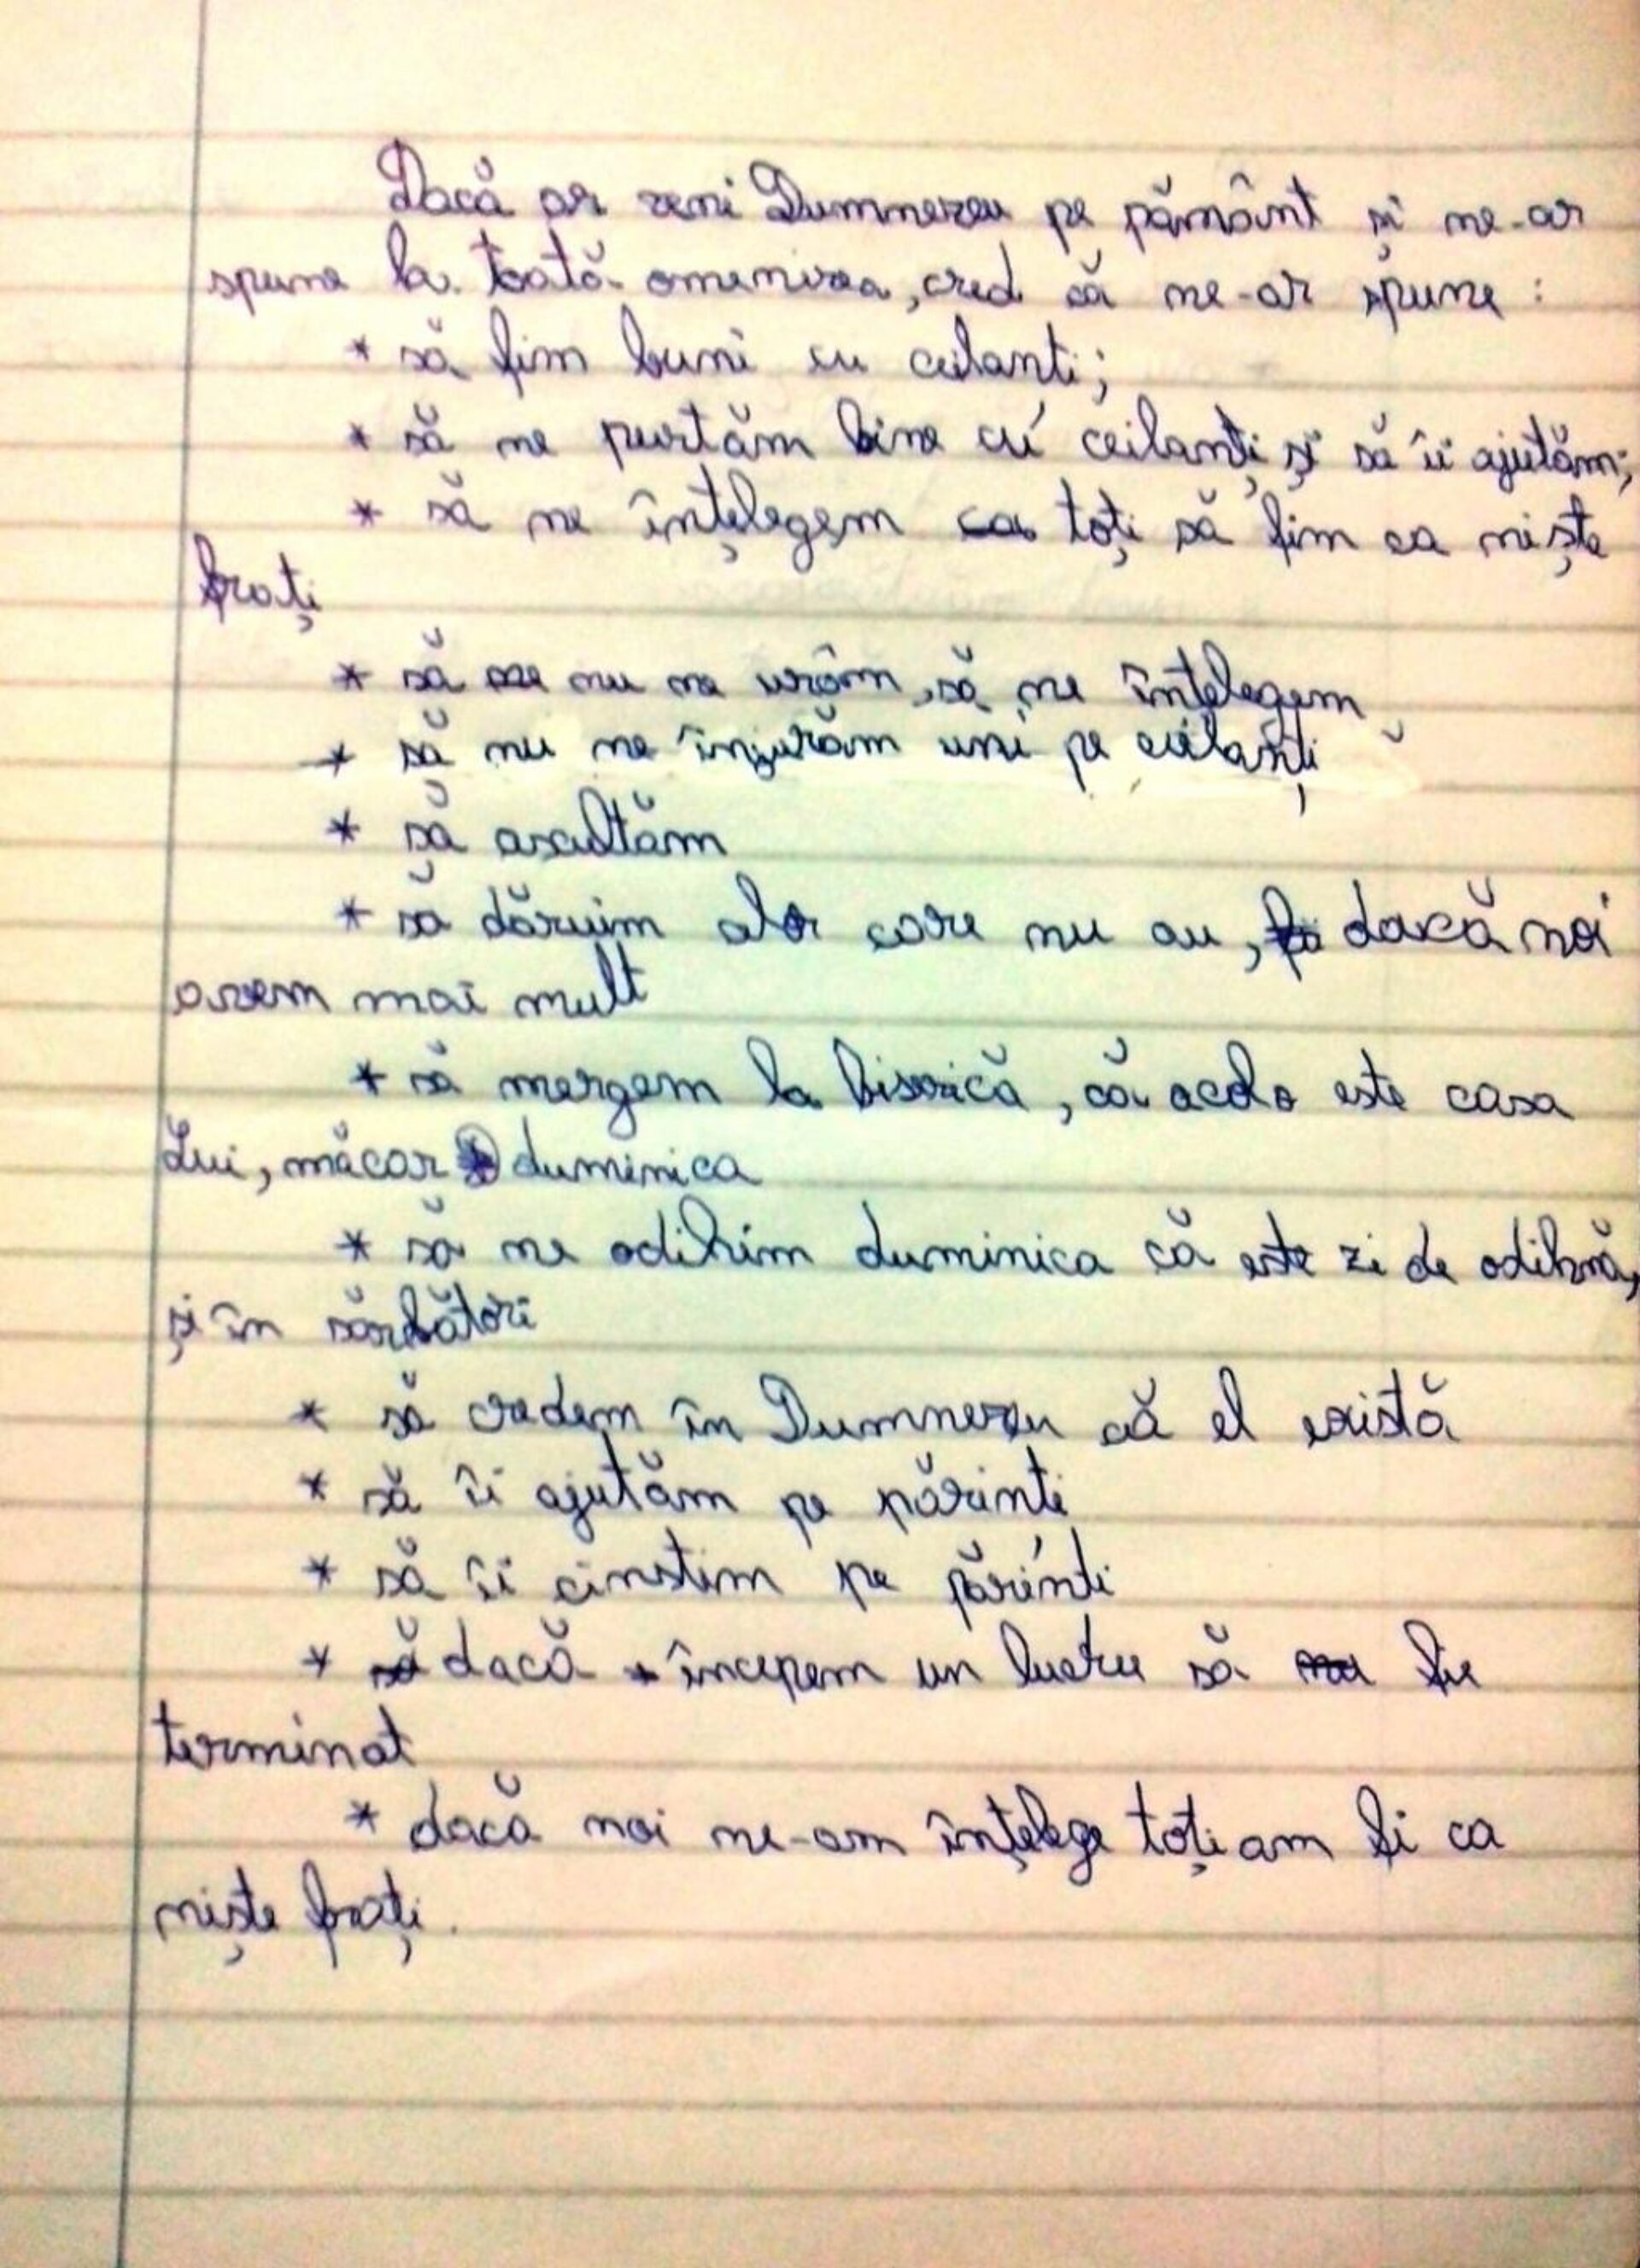 Dacă ar veni Dumnezeu pe pământ și ne-ar
spune la toată omenirea, cred că ne-ar spune :
* să fim buni cu ceilanți;
* să ne purtăm bine cu ceilanți și să îi ajutăm;
* să ne înțelegem ca toți să fim ca niște
frați
* să nu ne urâm, să ne înțelegem
* să nu ne înjurăm uni pe ceilanți
* să ascultăm
* să dăruim celor care nu au, dacă noi
avem mai mult
* să mergem la biserică, că acolo este casa
Lui, măcar duminica
* să ne odihim duminica că este zi de odihnă,
și în sărbători
* să credem în Dumnezeu că el există
* să îi ajutăm pe părinti
* să îi cinstim pe părinti
* dacă începem un lucru să fie
terminat
* dacă noi ne-am înțelege toți am fi ca
niște frați.